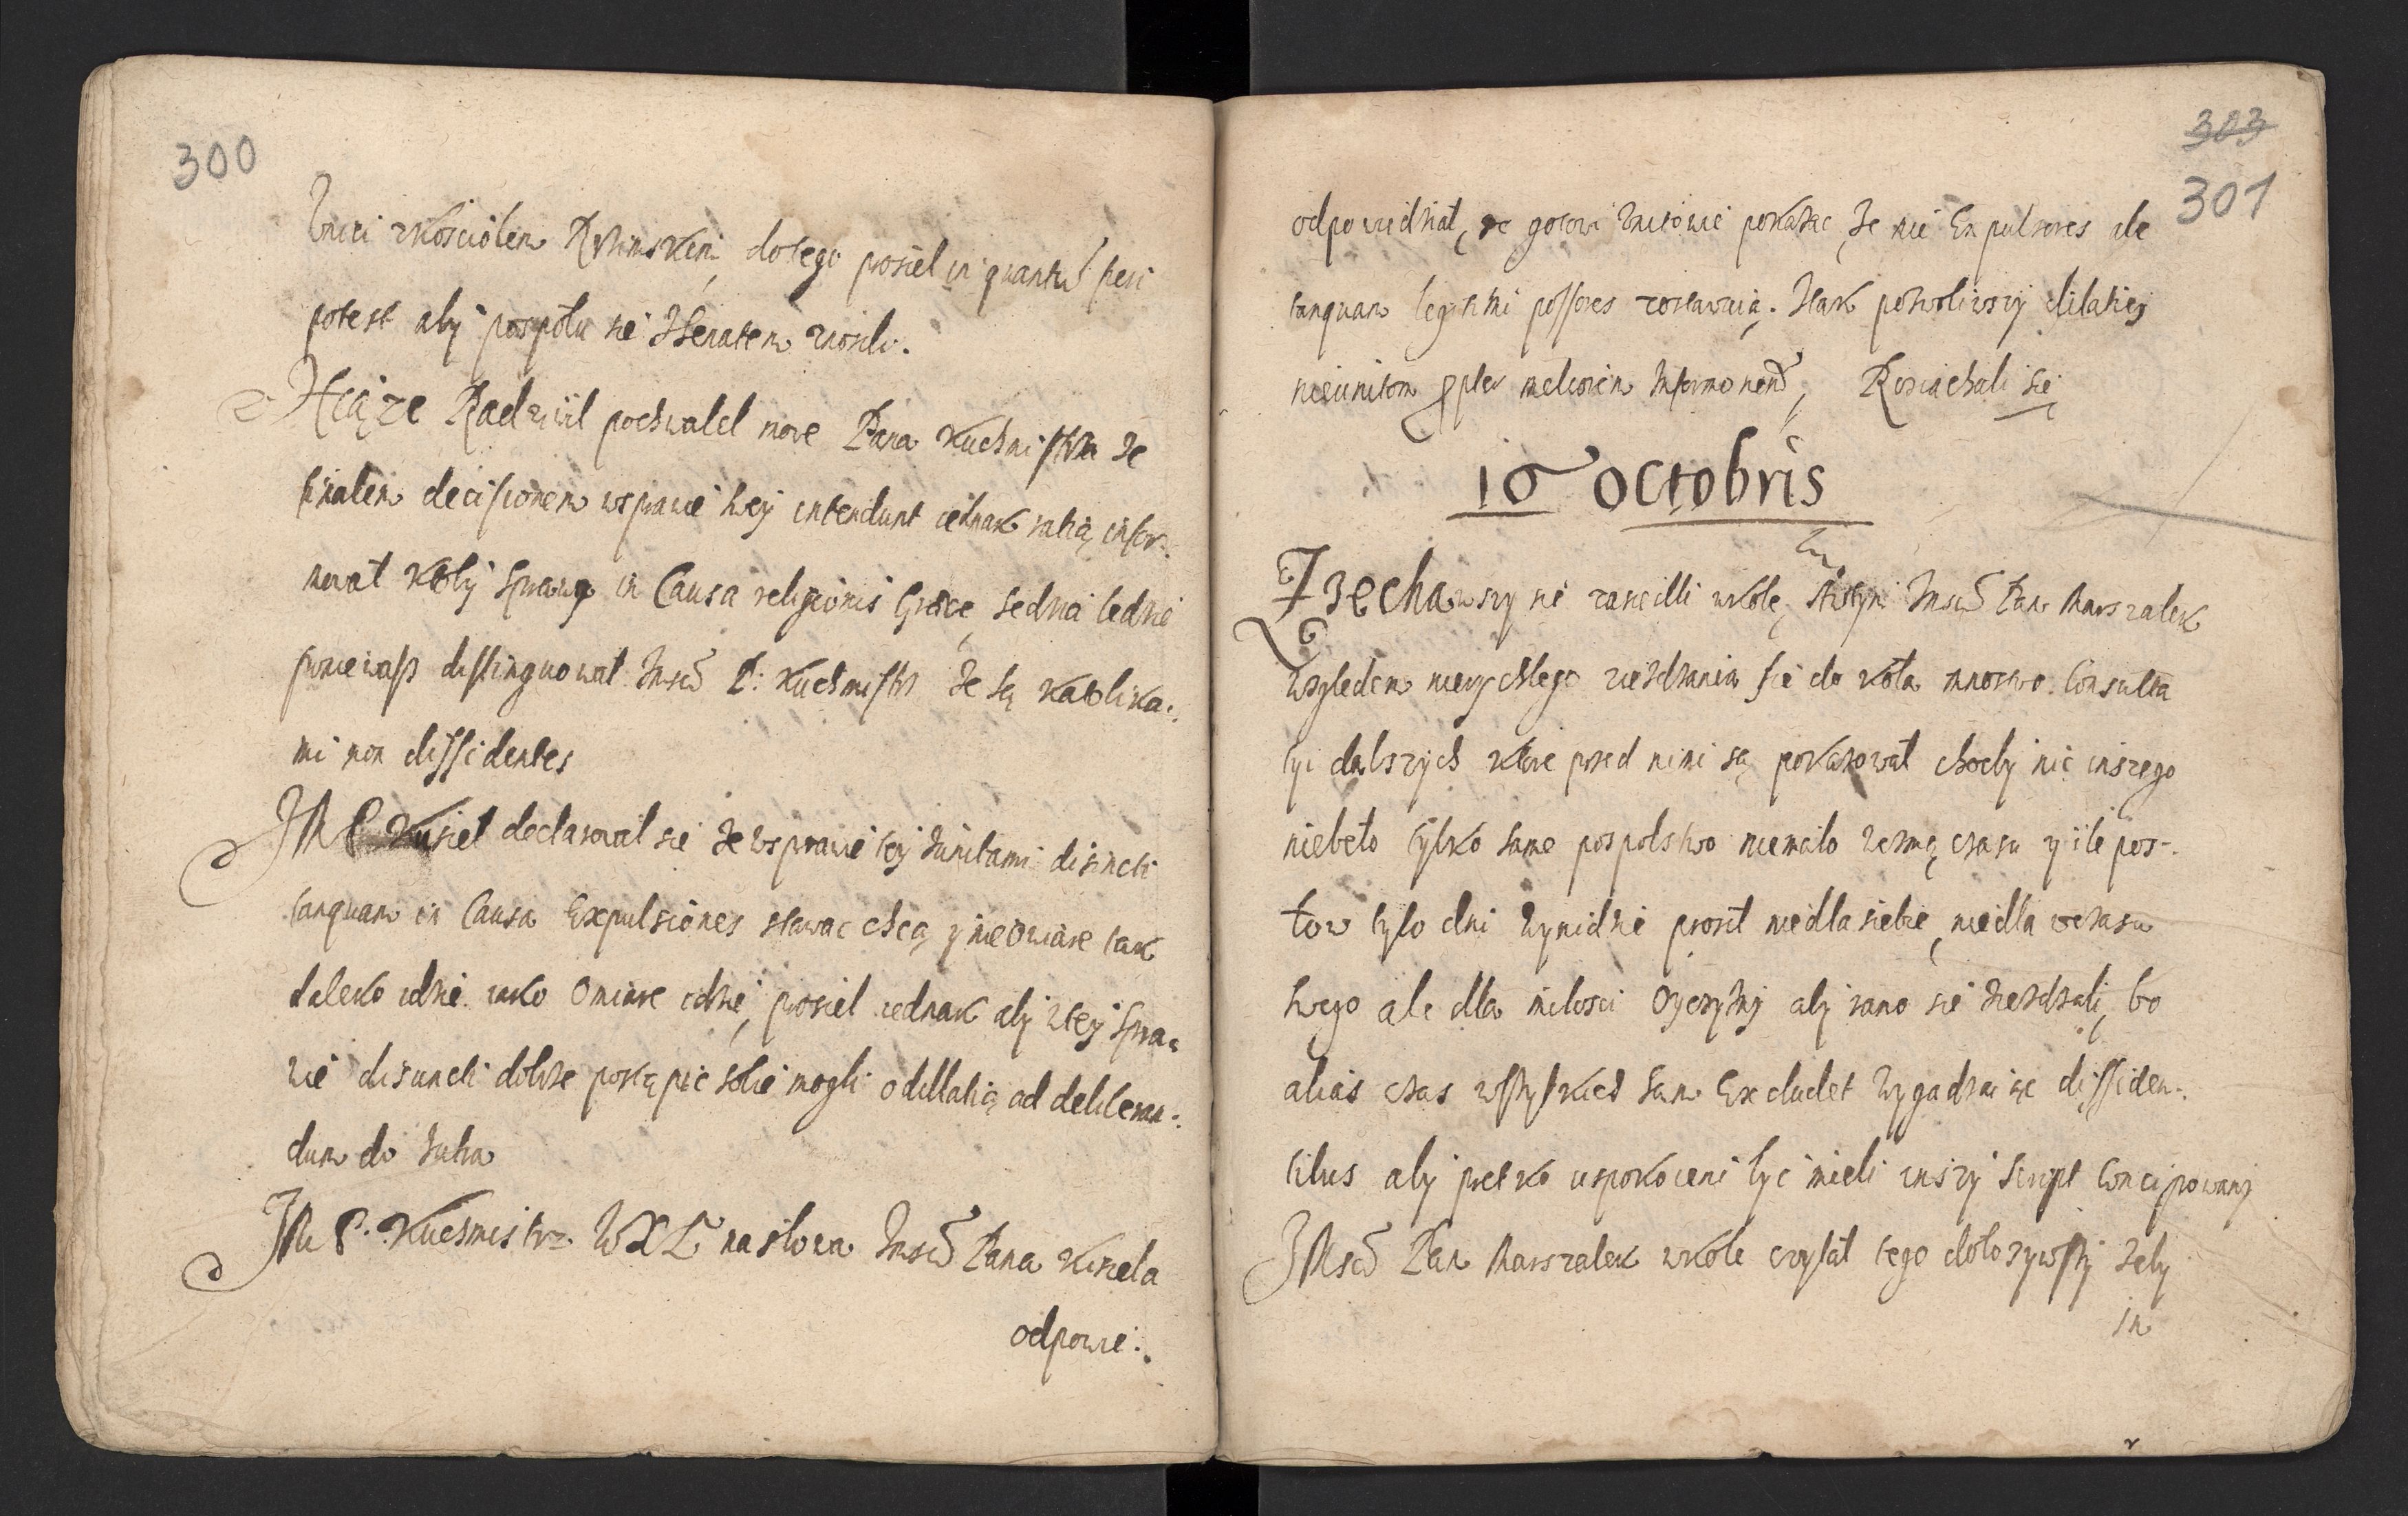 300
Unici zkościołem Rzymskim, dotego prosił in quantũ fieri
potest aby pospołu się zSenatem znosili.
Xciąze Radziwił pochwalił mowe Pana Kuchmistrza że
finalem decisionem wsprawie swey intendunt iednak ratią infor-
mował ktoby sprawy in Causa religionis Græce, sedna iedne
ponieważ distinguował Jmsć P: Kuchmistrz że są katolika-
mi non dissidentes
JM P Kisiel declarował sie że wsprawie tey zunitami disiuncti
tanquam in Causa Expulsiones stawac chcą y nie o wiare tak
daleko idzie iako o miare idzie, prosił iednak aby wtey spra-
wie disiuncti dobrze postąpic sobie mogli o dillatią ad deliberan-
dum do Jutra
JM P. Kuchmistrz WXL na słowa Jmsć Pana Kisiela
odpowie:
303
301
odpowiedział, że gotowi Unitowie pokazac, że nie Expulsores ale
tanquam legitimi possores zostawaią. Itak pozwoliwszy dilatiey
nieunitom propter meliorem Informationem, Rosiachali się
16 octobris
Zjechawszy się rano illi w kołę, Jmsć Pan Marszałek
względem nierychłego zieżdzania się do koła mnostwo Consulta
tyi dalszych które przed nimi są pokazował choćby nic inszego
niebeło tylko same pospolstwo niemało wezmą czasu y ile pos-
tow tylo dni wynidzie prosił niedla siebie, niedla wczasu
swego ale dla miłosci Oyczyzny aby rano sie zieżdzali, bo
aliás czas wszystkich sam Excludet wygadzaiąc dissiden-
tibus aby prętko uspokoieni byc mieli inszy script concipowany
JMsć Pan Marszałek wkole czytał tego dołozywszy żeby
in